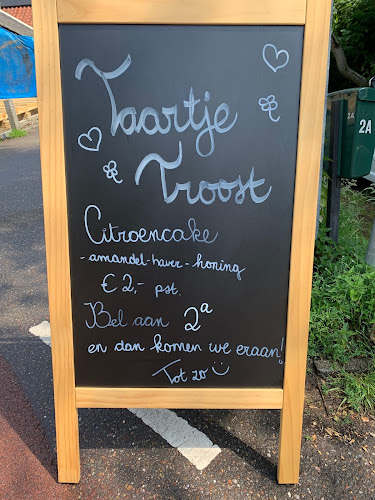 Taartje
Troost
Citroencake
- amandel - haver - honing
€ 2,- pst.
Bel aan 2a
en dan komen we eraan!
Tot zo
2A